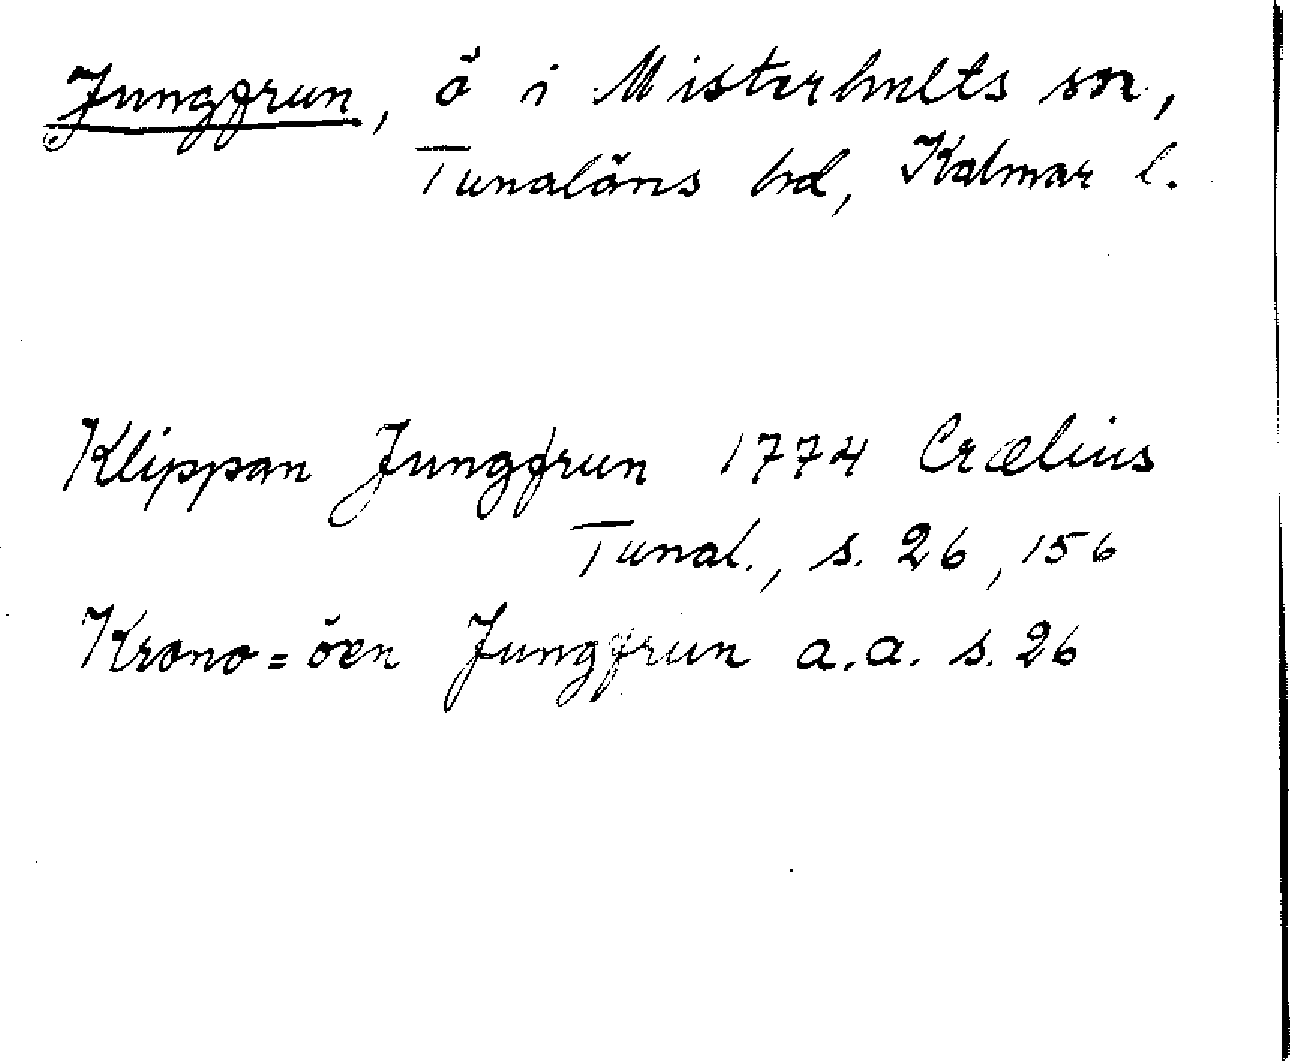 Jungfrun, ö i Misterhults sn,
Tunaläns hd, Kalmar l.
Klippan Jungfrun 1774 Crælius
Tunal., s. 26, 156
Krono=öen Jungfrun a.a. s. 26